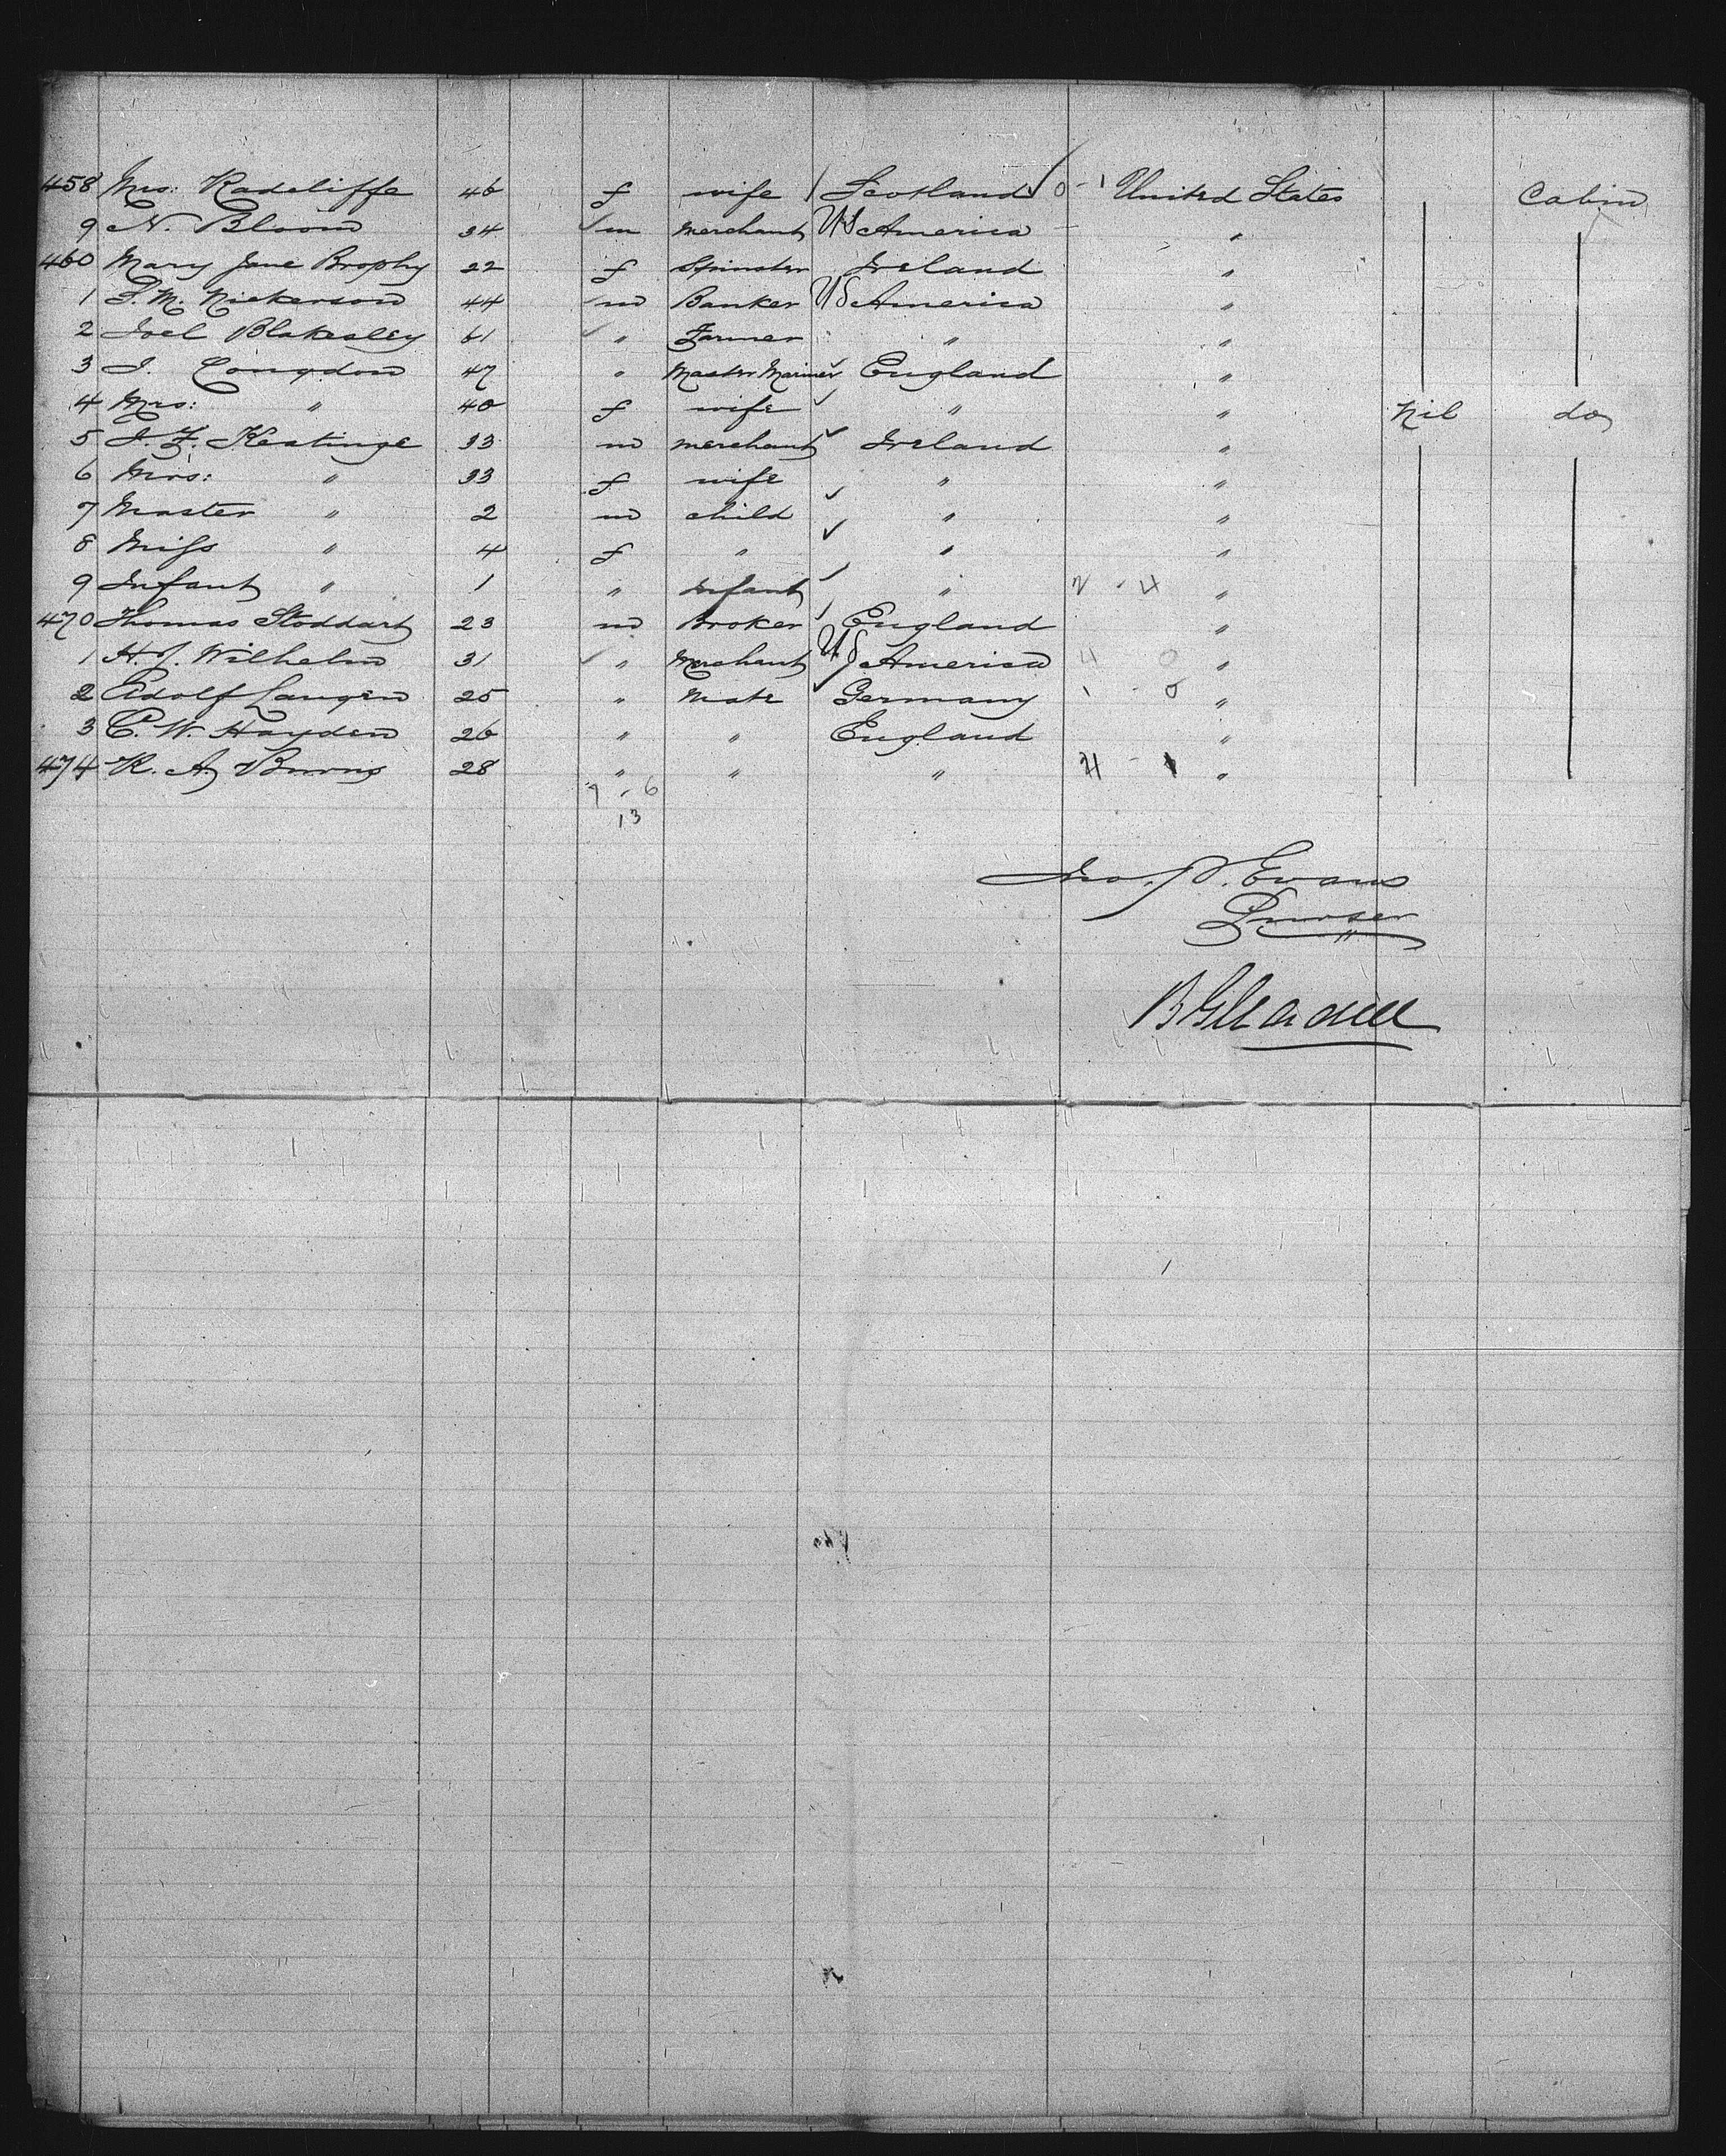 458 Mrs: Radcliffe 46 f wife Scotland 0 - 1 United States Cabin
9 N. Bloom 34 m merchant US America "
460 Mary Jane Brophy 22 f Spinster Ireland "
1 T. M. Nickerson 44 m Banker US America "
2 Joel Blakesley 61 " Farmer " "
3 J. Congdon 47 " Master Mariner England "
4 Mrs: " 40 f wife " " Nil do
5 J. F. Keatinge 33 m merchant Ireland "
6 Mrs: " 33 f wife " "
7 Master " 2 m child " "
8 Miss " 4 f " " "
9 Infant " 1 " Infant " 2 - 4 "
470 Thomas Stoddart 23 m Broker England "
1 H. J. Wilhelm 31 " Merchant US America 4 0 "
2 Adolf Langen 25 " Mate Germany 1 - 0 "
3 C. W. Hayden 26 " " England "
474 R. A. Burns 28 " " " 4 - 1 "
7 - 6
13
Jno. P. Evans
Purser
B Gleadell